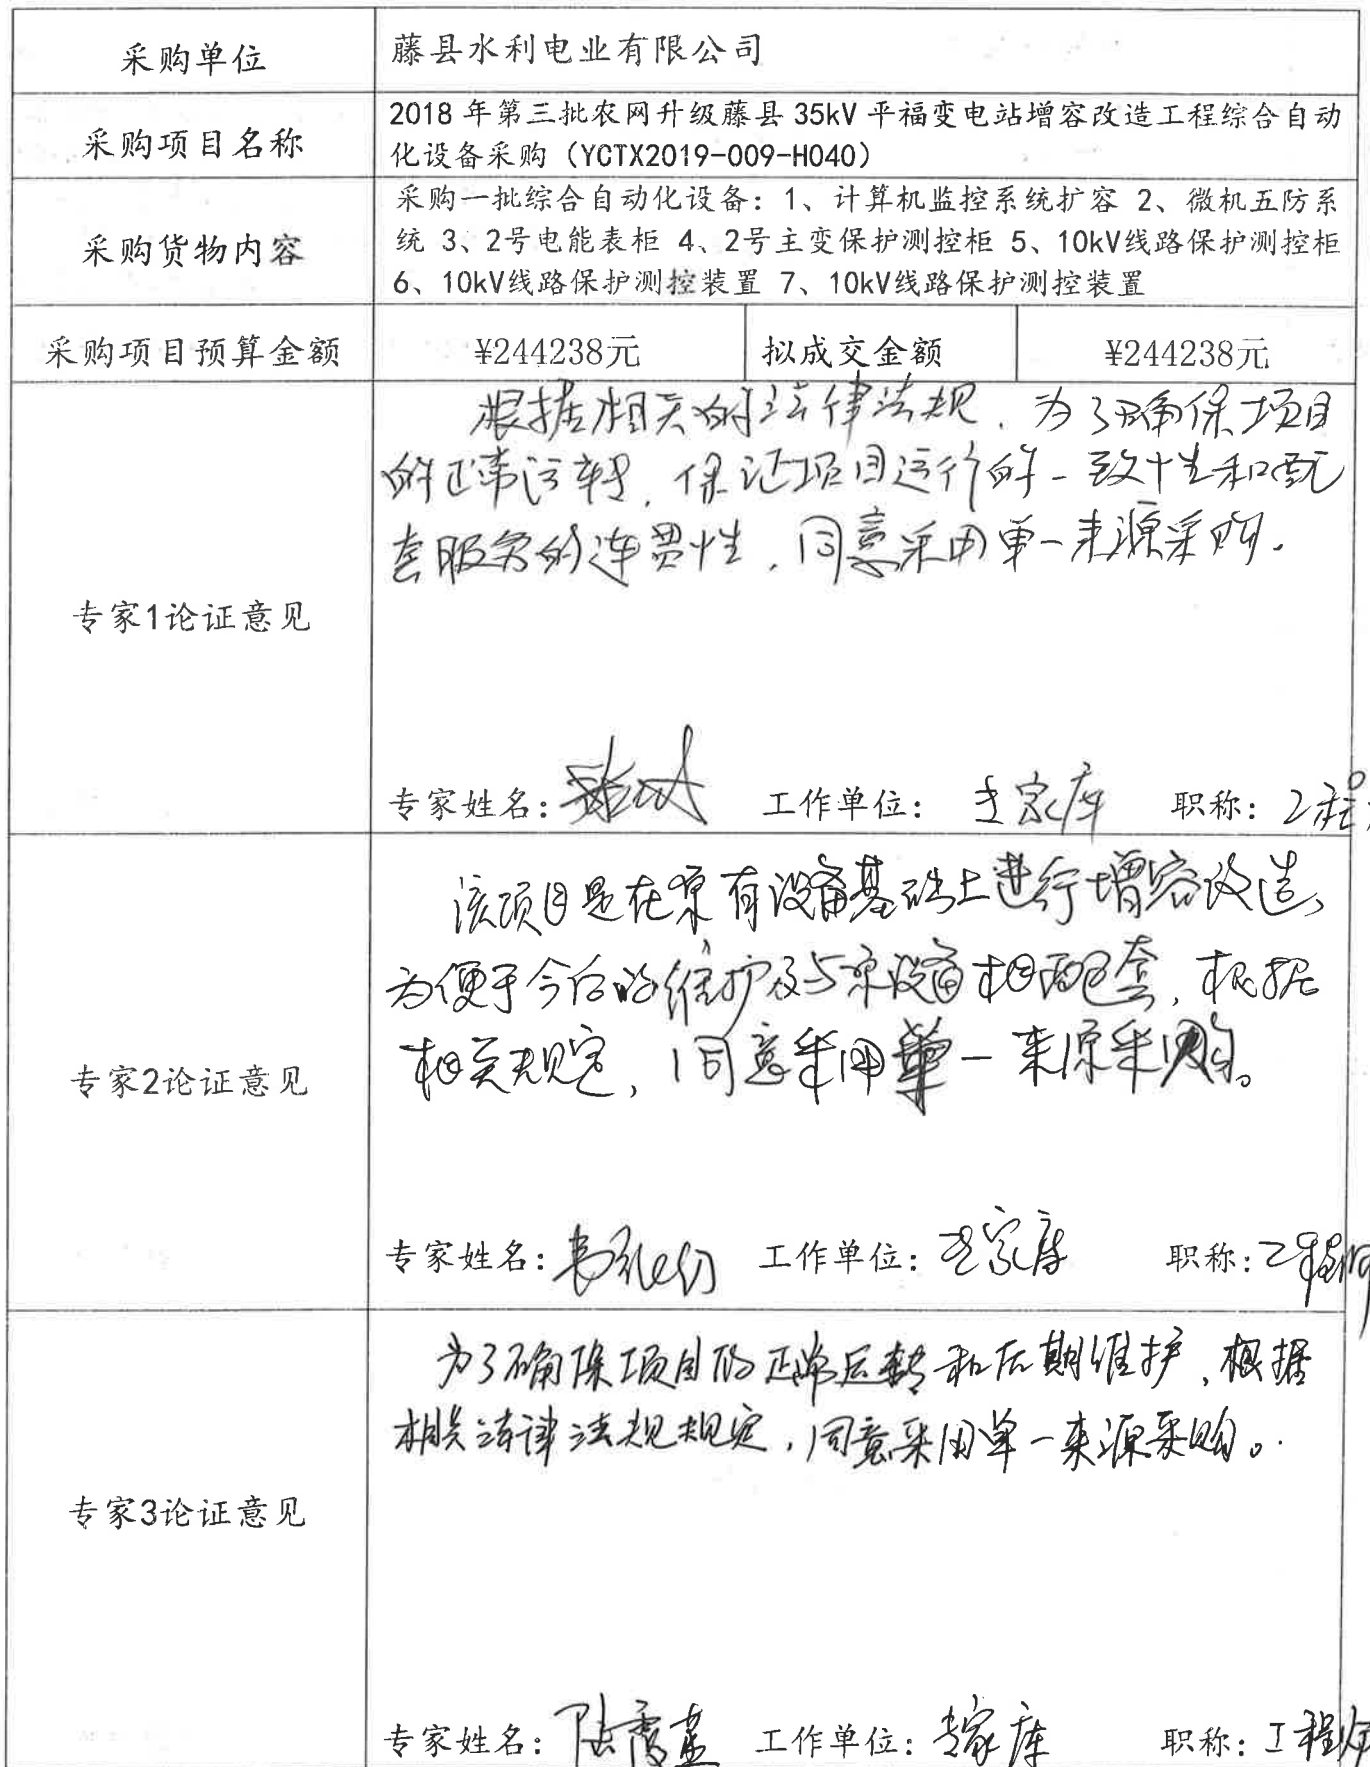 采购单位
藤县水利电业有限公司
采购项目名称
2018 年第三批农网升级藤县 35kV 平福变电站增容改造工程综合自动
化设备采购（YCTX2019-009-H040）
采购货物内容
采购一批综合自动化设备：1、计算机监控系统扩容 2、微机五防系
统 3、2号电能表柜 4、2号主变保护测控柜 5、10kV线路保护测控柜
6、10kV线路保护测控装置 7、10kV线路保护测控装置
采购项目预算金额
¥244238元
拟成交金额
¥244238元
专家1论证意见
根据相关的法律法规，为了确保项目
的正常运转，保证项目运行的一致性和配
套服务的连贯性，同意采用单一来源采购.
专家姓名： 工作单位：专家库 职称：工程
专家2论证意见
该项目是在原有设备基础上进行增容改造，
为便于今后的维护及与原设备相配套，根据
相关规定，同意采用单一来源采购。
专家姓名： 工作单位：专家库 职称：工程师
专家3论证意见
为了确保项目的正常运转和后期维护，根据
相关法律法规规定，同意采用单一来源采购。
专家姓名： 工作单位：专家库 职称：工程师